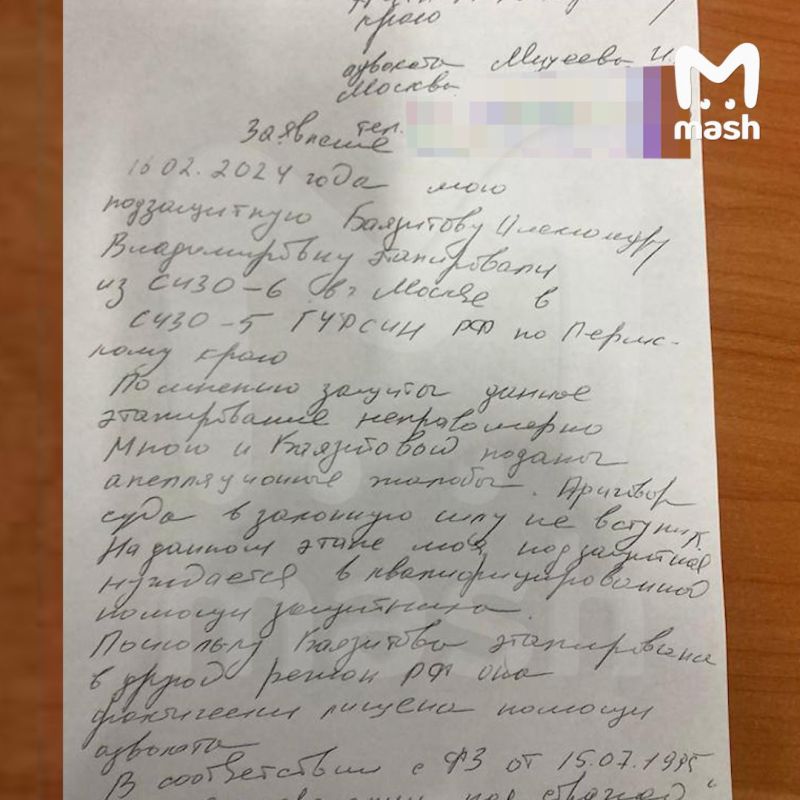 краю
адвоката Михеева И.
Москва
тел.
Заявление
16.02.2024 года мою
подзащитную Баязитову Александру
Владимировну этапировали
из СИЗО-6 в г. Москве в
СИЗО-5 ГУФСИН РФ по Пермс-
кому краю
По мнению защиты данное
этапирование неправомерно
Мною и Баязитовой поданы
апелляционные жалобы. Приговор
суда в законную силу не вступил.
На данном этапе моя подзащитная
нуждается в квалифицированной
помощи защитника.
Поскольку Баязитова этапирована
в другой регион РФ она
фактически лишена помощи
адвоката
В соответствии с ФЗ от 15.07.1995
под стражей"
mash
mash